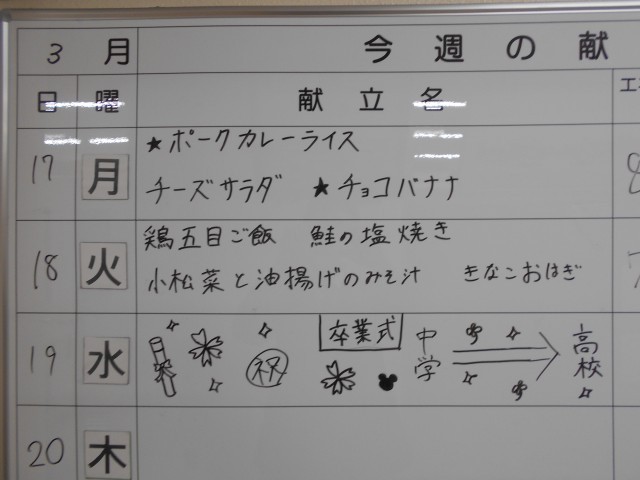 3 月 今週の献
日 曜 献立名 エネ
17 月 ★ポークカレーライス
チーズサラダ ★チョコバナナ
18 火 鶏五目ご飯 鮭の塩焼き
小松菜と油揚げのみそ汁 きなこおはぎ
19 水 祝 卒業式 中学 高校
20 木